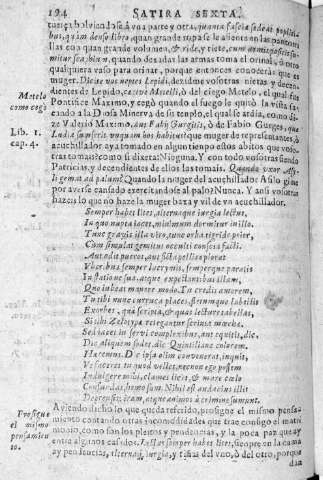 194 SATIRA SEXTA.
tuerça bolviendose à vna parte y otra, quanta fascia sedeat poplitibus, quàm denso libro, quan grande ropa se le assienten en las pantorrillas con quan grande volumen, & ride, y riete, cum
mitur scaphium, y quando dexadas las armas toma el orinal, ò otra
qualquiera vaso para orinar, porque entonces conoceràs que es
muger. Dicite vos neptes Lepidi, dezidme vosotras nietas y decendientes
de Lepido, cæcive Metelli, ò del ciego Metelo, el qual fue
Pontifice Maximo, y cegò quando el fuego le quitò la vista sacando
a la Diosa Minerva de su templo, el qual ardia, como dize
Valerio Maximo, aut Fabij Gurgitis, ò de Fabio Gurges, quæ
Ludia sumpserit unquam hos habitus? que muger de representantes, ò
acuchillador aya tomado en algun tiempo estos abitos que vosotras
tomais? como si dixera: Ninguna. Y con todo vosotras siendo
Patricias, y decendientes de ellos las tomais. Quando uxor Asyli
gemat ad palum? Quando la muger del acuchillador Asylo gime
por averse cansado exercitandose al palo? Nunca. Y ansi vosotras
hazeis lo que no haze la muger baxa y vil de vn acuchillador.
Metelo
como cegò
Lib. 1.
cap. 4.
Semper habet lites, alternaque iurgia lectus,
In quo nupta iacet, minimum dormitur in illo.
Tunc gravis illa viro, tunc orba tigride prior,
Cum simulat gemitus occulti conscia facti.
Aut odit pueros, aut ficta pellice plorat
Vberibus semper lacrymis, semperque paratis
In statione sua, atque expectantibus illam,
Quo iubeat manare modo. Tu credis amorem,
Tu tibi nunc curruca places, fletumque labellis
Exorbes, quæ scripta, & quas lecture tabellas,
Si tibi Zelotypæ retegantur scrinia mæche.
Sed iacet in servi complexibus, aut equitis, dic,
Dic aliquem sodes, dic Quintiliane colorem.
Hæremus. Dic ipsa olim convenerat, inquit,
Vt faceres tu quod velles, necnon ego possem
Indulgere mihi, clames licet, & mare cœlo
Confundas, homo sum. Nihil est audacius illis
Deprensis, iram, atque animos à crimine sumunt.
Prosigue
el mismo
pensamiento.
Aviendo dicho lo que queda referido, prosigue el mismo pensamiento
contando otras incomodidades que trae consigo el matrimonio,
como son los pleytos y pendencias, y la poca paz que ay
entre algunos casados. Lectus semper habet lites, siempre en la cama
ay pendencias, alternaque iurgia, y riñas del vno, ò del otro, porque